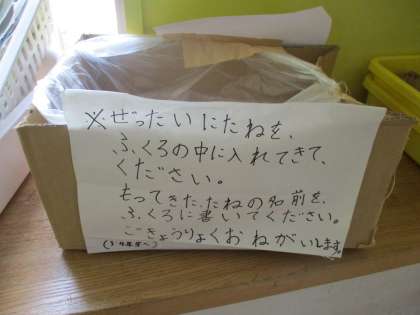 ※ぜったいにたねを、
ふくろの中に入れてきて、
ください。
もってきた、たねの名前を、
ふくろに書いてください。
ごきょうりょくおねがいします